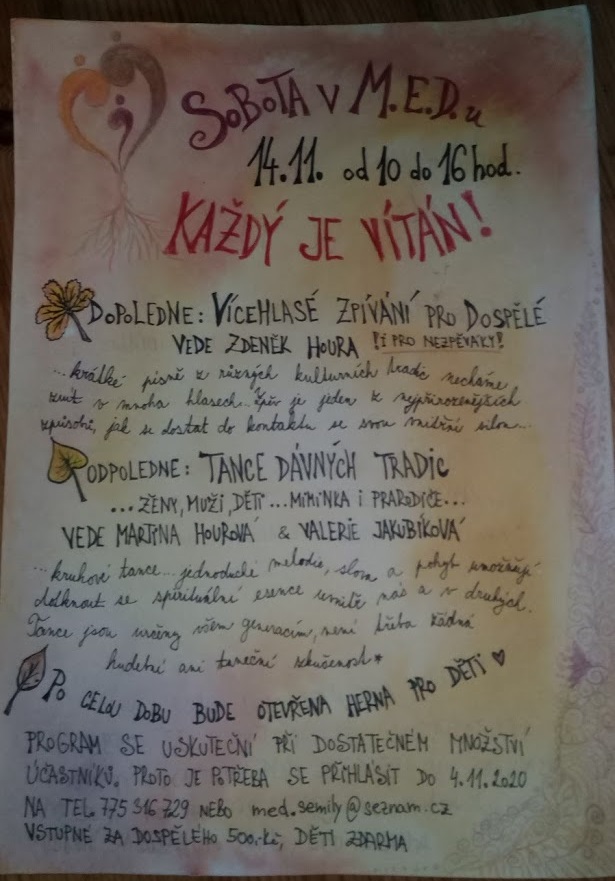 SOBOTA V M.E.D.u
14.11. od 10 do 16 hod.
KAŽDÝ JE VÍTÁN!
DOPOLEDNE: VÍCEHLASÉ ZPÍVÁNÍ PRO DOSPĚLÉ
VEDE ZDENĚK HOURA !I PRO NEZPĚVÁKY!
...krátké písně z různých kulturních tradic necháme
znít v mnoha hlasech...Zpěv je jeden z nejpřirozenějších
způsobů, jak se dostat do kontaktu se svou vnitřní silou...
ODPOLEDNE: TANCE DÁVNÝCH TRADIC
...ŽENY, MUŽI, DĚTI...MIMINKA I PRARODIČE...
VEDE MARTINA HOUROVÁ & VALERIE JAKUBÍKOVÁ
...kruhové tance...jednoduché melodie, slova a pohyb umožňují
dotknout se spirituální esence uvnitř nás a v druhých.
Tance jsou určeny všem generacím, není třeba žádná
hudební ani taneční zkušenost*
PO CELOU DOBU BUDE OTEVŘENA HERNA PRO DĚTI ♥
PROGRAM SE USKUTEČNÍ PŘI DOSTATEČNÉM MNOŽSTVÍ
ÚČASTNÍKŮ. PROTO JE POTŘEBA SE PŘIHLÁSIT DO 4.11.2020
NA TEL. 775 316 729 NEBO med.semily@seznam.cz
VSTUPNÉ ZA DOSPĚLÉHO 500,-Kč, DĚTI ZDARMA